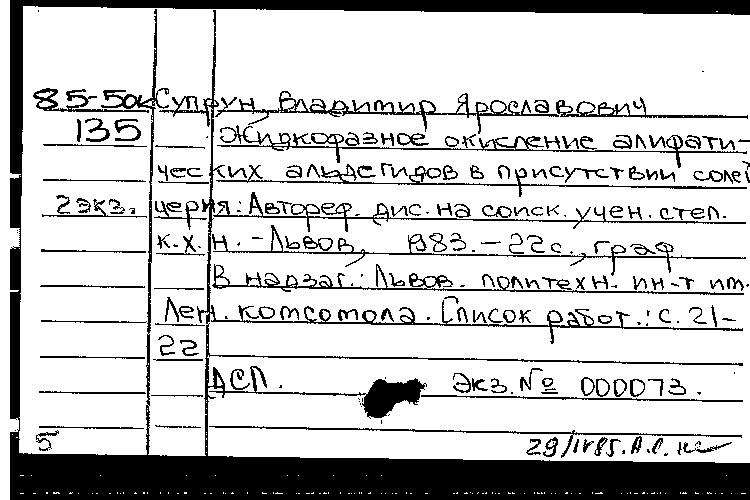 85-50к Супрун, Владимир Ярославович
135 Жидкофазное окисление алифати-
ческих альдегидов в присутствии солей
2 экз. церия: Автореф. дис. на соиск. учен. степ.
к.х.н. - Львов, 1983. - 22 с., граф
В надзаг.: Львов. политехн. ин-т им.
Лен. комсомола. Список работ.: с. 21-
22
ДСП. Экз. № 000073.
5 29/IV85.